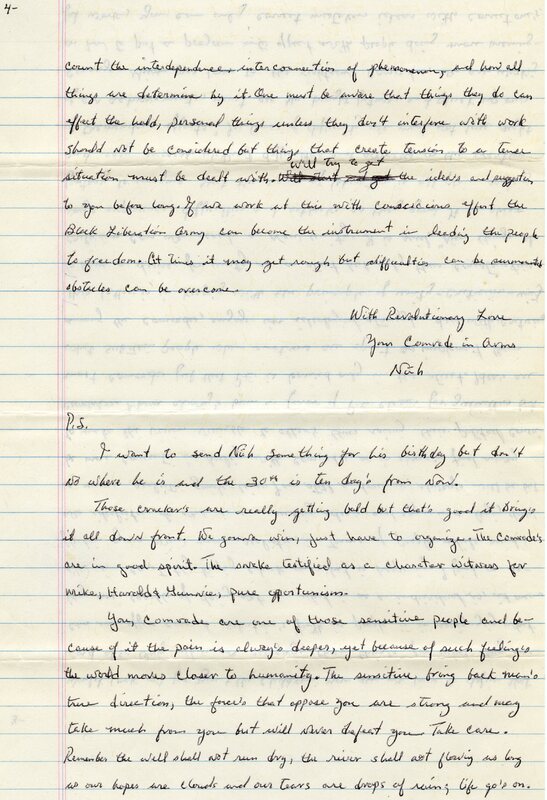 4-
count the interdependence, interconnection of phenomenon, and how all
things are determine by it. One must be aware that things they do can
effect the hold, personal things unless they don't interfere with work
should not be considered but things that create tension to a tense
situation must be dealt with. will try to get the ideas and suggestion
to you before long. If we work at this with conscious effort the
Black Liberation Army can become the instrument in leading the people
to freedom. At times it may get rough but difficulties can be surmounted
obstacles can be overcome.
With Revolutionary Love
Your Comrade in Arms
Nuh
P.S.
I want to send Nuh something for his birthday but don't
no where he is and the 30th is ten day's from now.
Those cracker's are really getting bold but that's good it bring's
it all down front. We gonna win, just have to organize. The Comrade's
are in good spirit. The snake testified as a character witness for
Mike, Harold & Gunnie, pure opportunism.
You, Comrade are one of those sensitive people and be-
cause of it the pain is always deeper, yet because of such feeling's
the world moves closer to humanity. The sensitive bring back man's
true direction, the force's that oppose you are strong and may
take much from you but will never defeat you. Take care.
Remember the well shall not run dry, the river shall not flowing as long
as our hopes are clouds and our tears are drops of rain; life go's on.